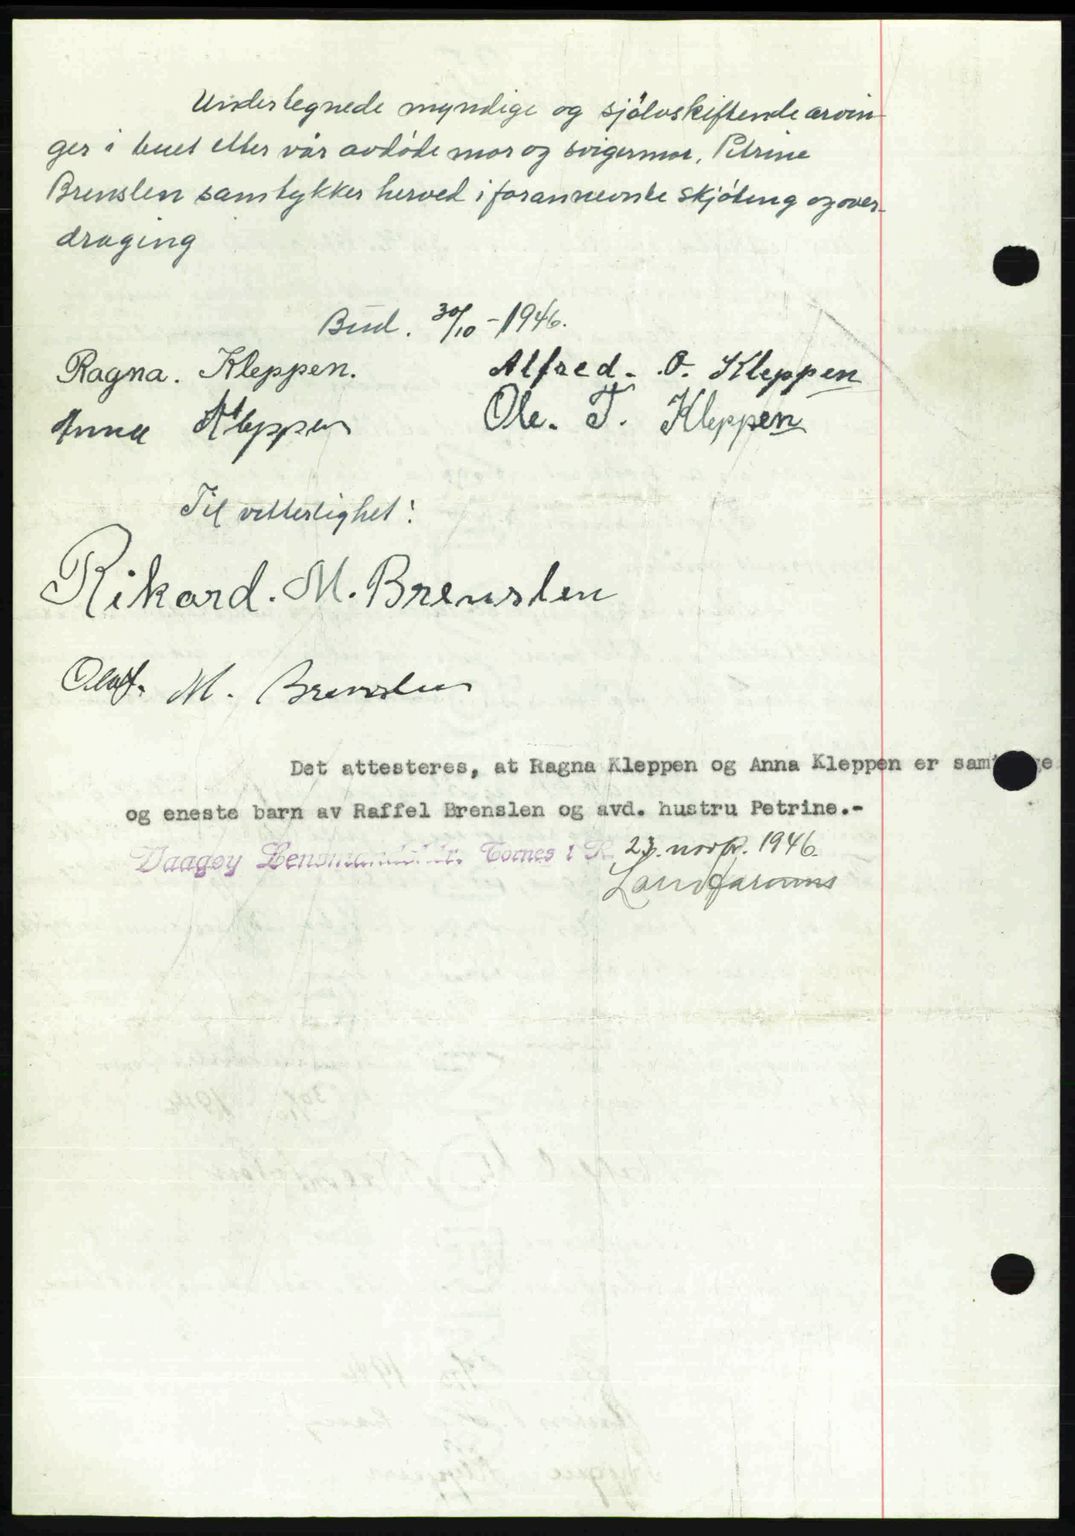 Undertegnede myndige og sjølvskiftende arvin-
ger i buet etter vår avdøde mor og svigermor, Petrine
Brenslen samtykker herved i forannevnte skjøting og over-
draging
Bud. 30/10 - 1946.
Ragna. Kleppen. Alfred. O. Kleppen
Anna Kleppen Ole. T. Kleppen
Til vitterlighet:
Rikard. M. Brenslen
Olaf. M. Brenslen
Det attesteres, at Ragna Kleppen og Anna Kleppen er
og eneste barn av Raffel Brenslen og avd. hustru Petrine.-
Vaagøy Tornes i R. 23. novbr. 1946.